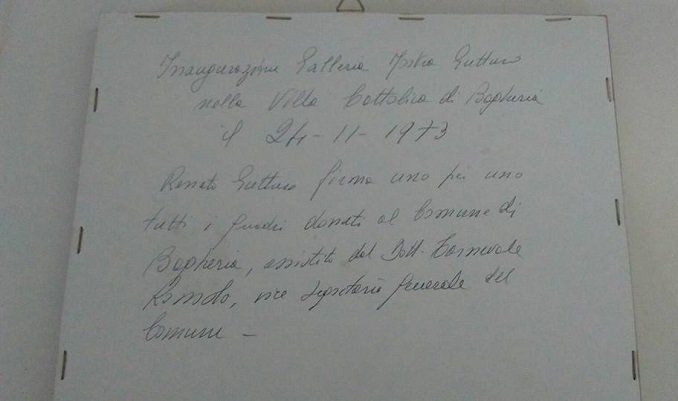 Inaugurazione Galleria Mostra Guttuso
nella Villa Cattolica di Bagheria
il 24-11-1973
Renato Guttuso firma uno per uno
tutti i quadri donati al Comune di
Bagheria, assistito dal Dott. Carnevale
Romolo, vice segretario generale del
Comune -